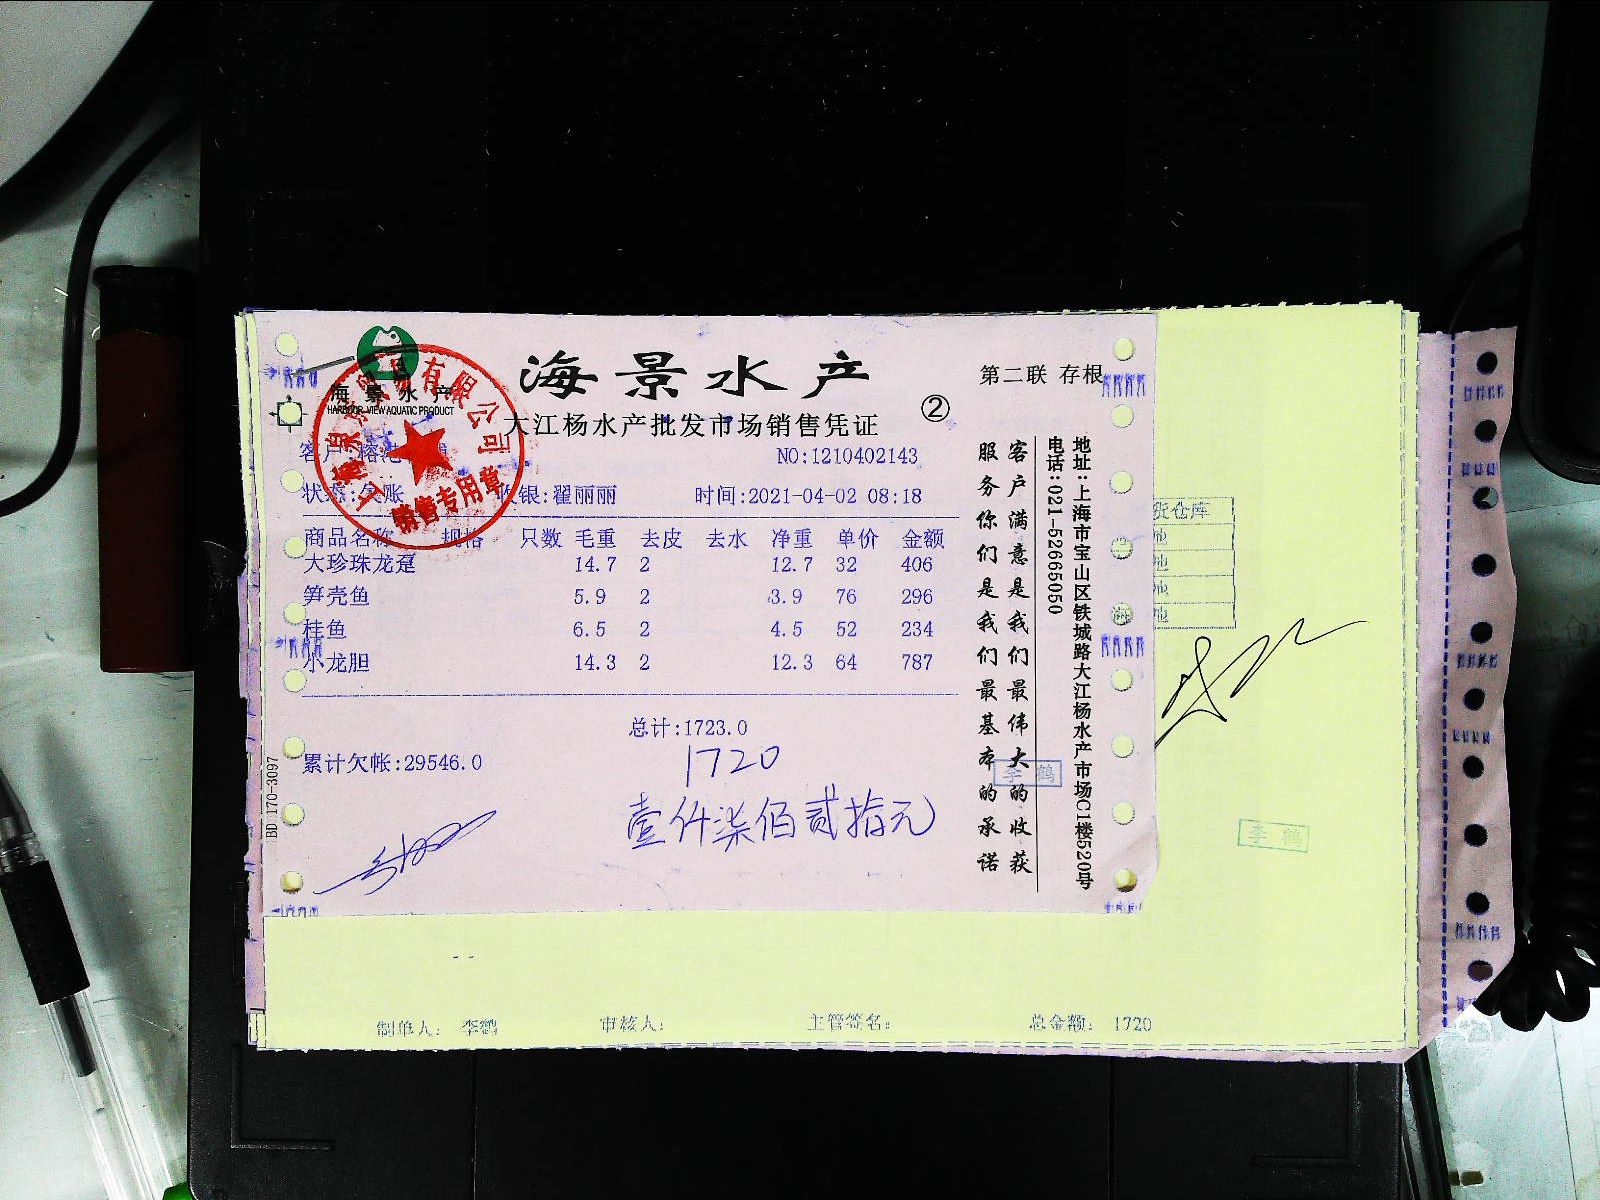 海景水产
HARBOUR-VIEW AQUATIC PRODUCT
海景水产
大江杨水产批发市场销售凭证
②
第二联 存根
有限公司
销售专用章
客户:
NO:1210402143
状态:欠账
收银:翟丽丽
时间:2021-04-02 08:18
商品名称 规格 只数 毛重 去皮 去水 净重 单价 金额
大珍珠龙趸 14.7 2 12.7 32 406
笋壳鱼 5.9 2 3.9 76 296
桂鱼 6.5 2 4.5 52 234
小龙胆 14.3 2 12.3 64 787
总计:1723.0
累计欠帐:29546.0
1720
壹仟柒佰贰拾元
客户满意是我们最伟大的收获
服务你们是我们最基本的承诺
地址:上海市宝山区铁城路大江杨水产市场C1楼520号
电话:021-52665050
170-3097
李鹤
仓库
李鹤
制单人: 李鹤 审核人: 主管签名: 总金额: 1720